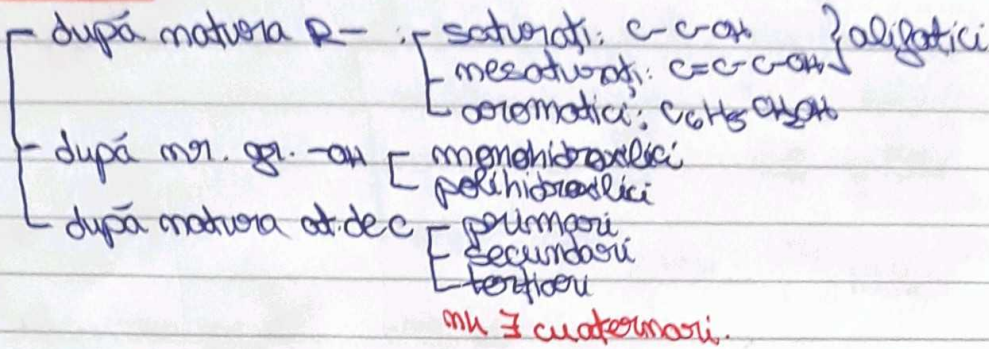 - după natura R- : - saturați: C-C-OH } alifatici
- nesaturați: C=C-C-OH
- aromatici: C6H5 CH2OH
- după nr. gr. -OH - monohidroxilici
- polihidroxilici
- după natura at. de C - primari
- secundari
- terțiari
nu ∃ cuaternari.